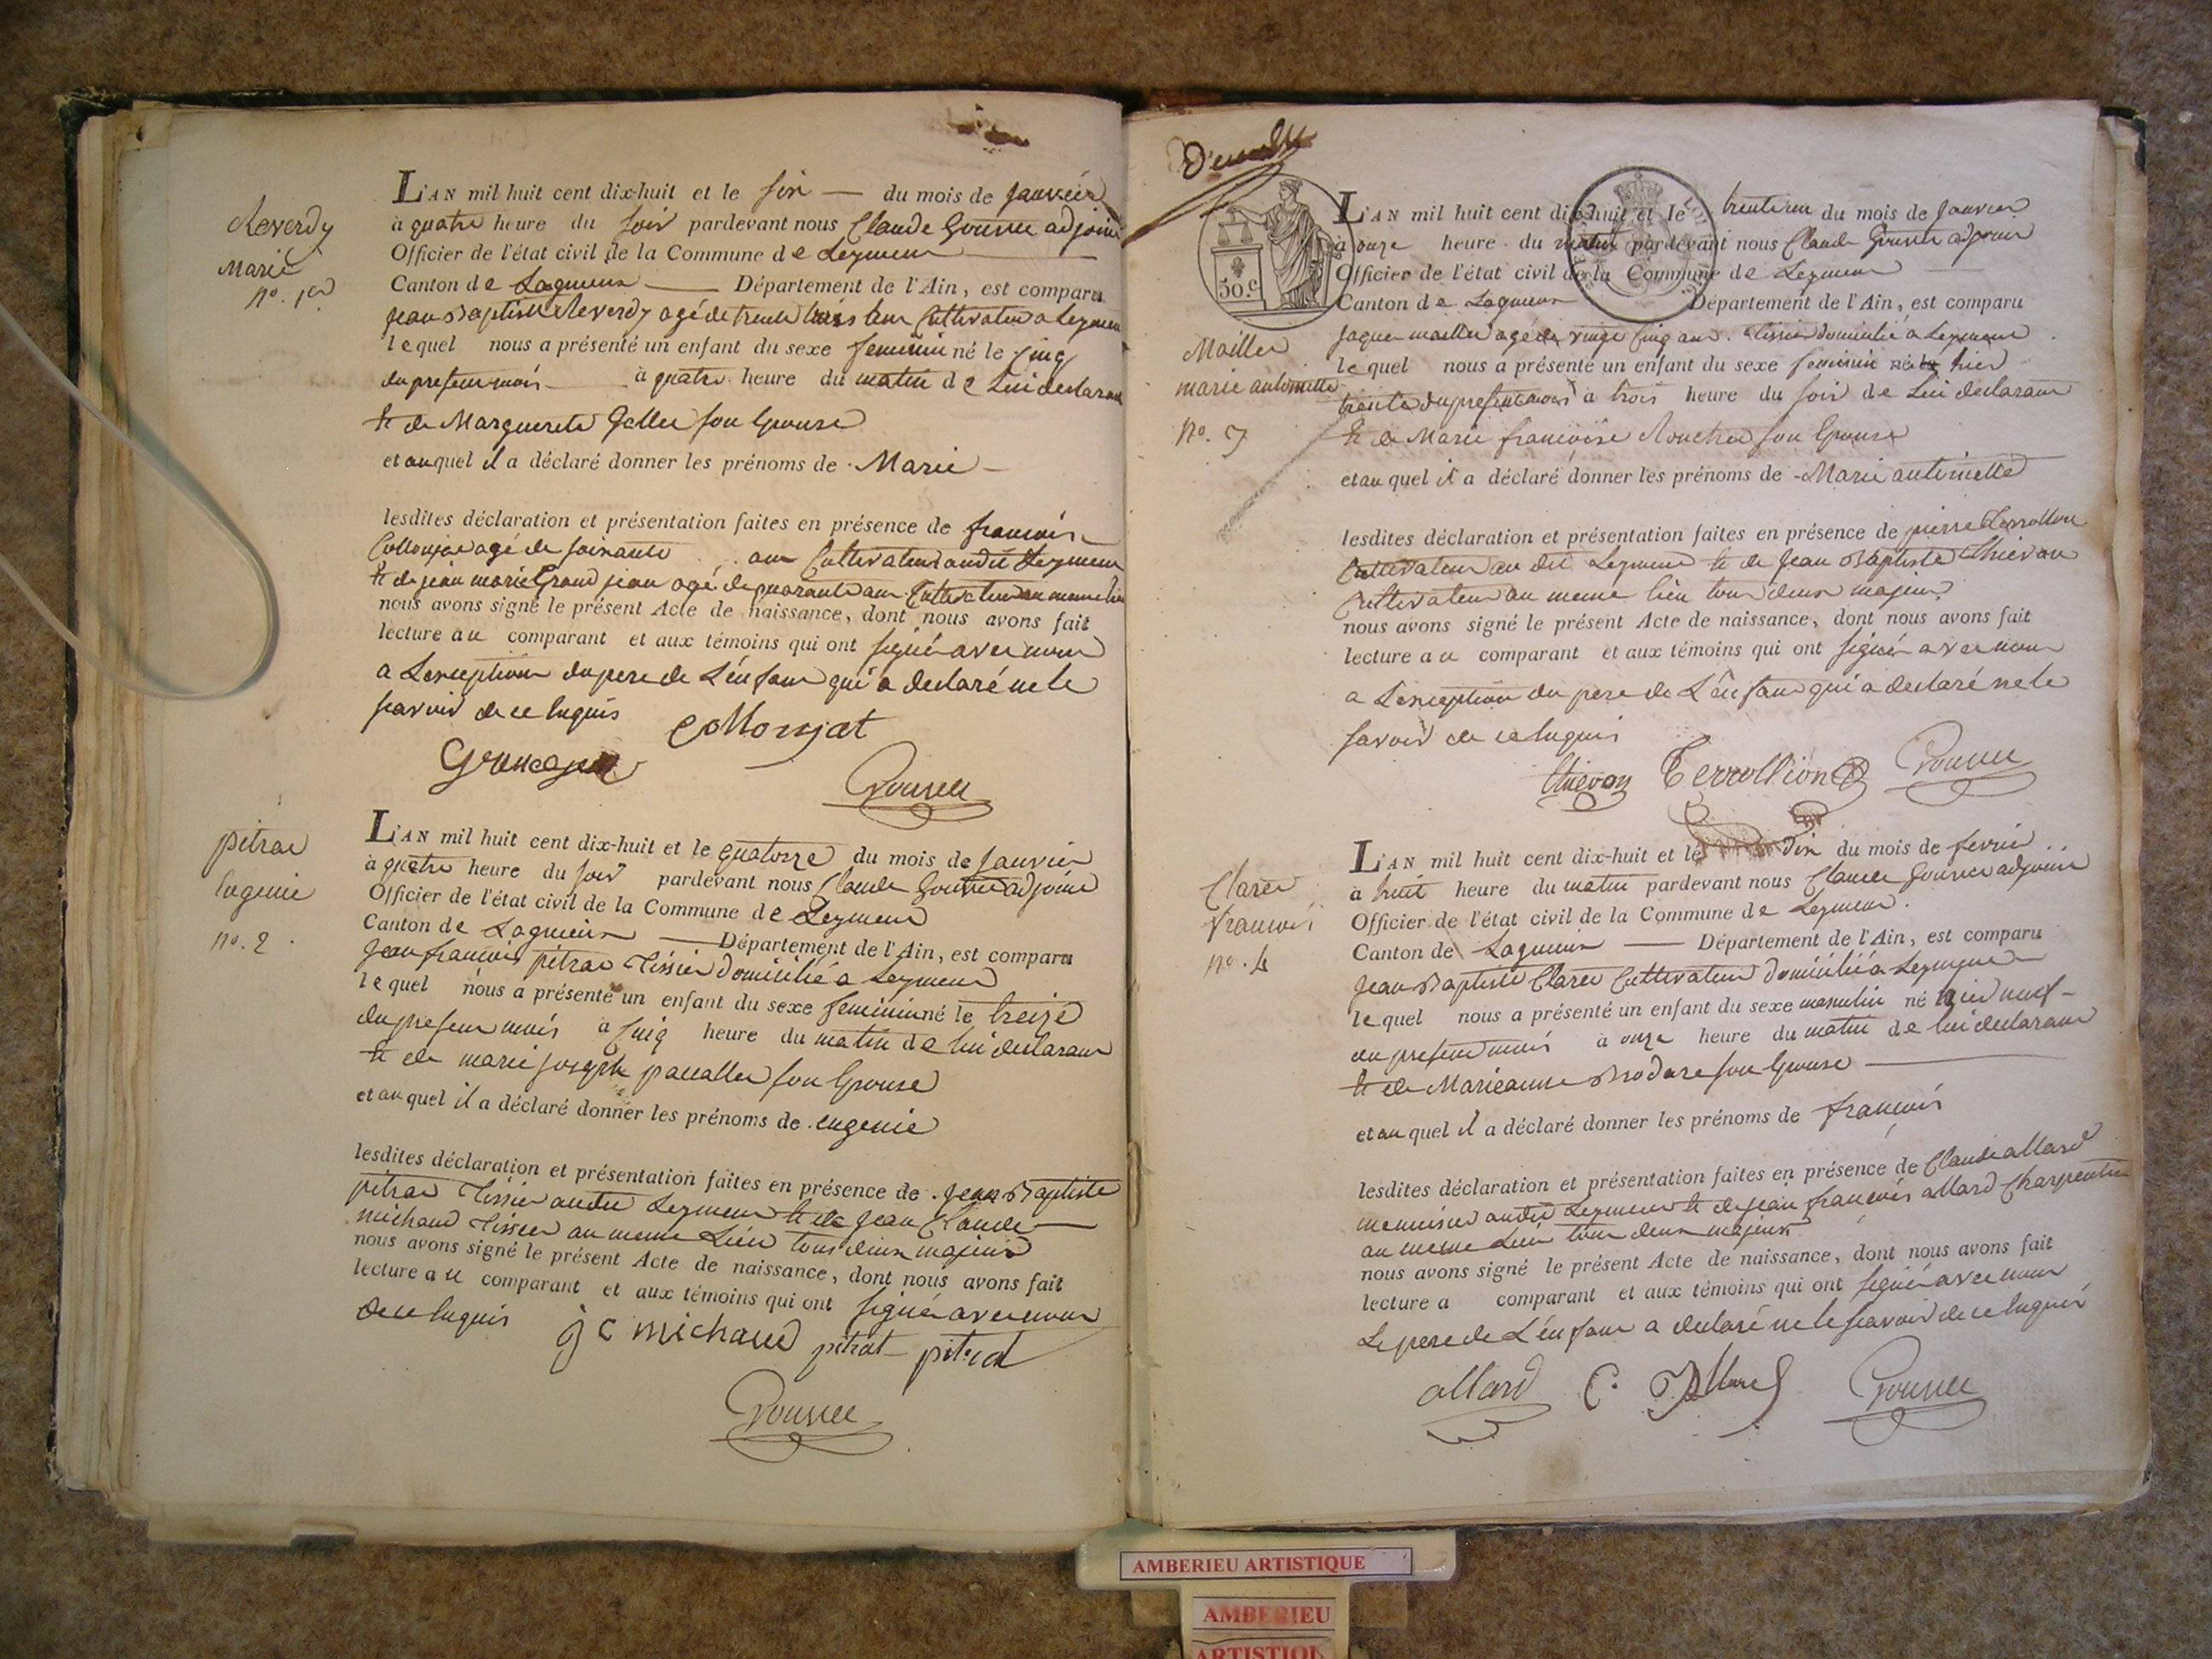 Reverdy
Marie
no. 1er
L'AN mil huit cent dix-huit et le six du mois de janvier
à quatre heure du soir pardevant nous Claude adjoint
Officier de l'état civil de la Commune de Leymen
Canton de Lagnieu Département de l'Ain, est comparu
jean Baptiste Reverdy agé de trente trois ans Cultivateur a Leymen
lequel nous a présenté un enfant du sexe feminin né le cinq
du present mois à quatre heure du matin de Lui declarant
et de Marguerite son Epouse
et auquel il a déclaré donner les prénoms de Marie
lesdites déclaration et présentation faites en présence de francois
Collonjat agé de soixante ans Cultivateur audit Leymen
et de jean marie Grand jean agé de quarante ans Cultivateur au meme lieu
nous avons signé le présent Acte de naissance, dont nous avons fait
lecture au comparant et aux témoins qui ont signés avec nous
a L'exception du pere de L'enfant qui a declaré ne le
savoir de ce Enquis
Collonjat
pitrat
Eugenie
no. 2
L'AN mil huit cent dix-huit et le quatorze du mois de janvier
à quatre heure du soir pardevant nous Claude adjoint
Officier de l'état civil de la Commune de Leymen
Canton de Lagnieu Département de l'Ain, est comparu
jean francois pitrat Tissier domicilié a Leymen
lequel nous a présenté un enfant du sexe feminin né le treize
du present mois à cinq heure du matin de lui declarant
et de marie joseph son Epouse
et auquel il a déclaré donner les prénoms de eugenie
lesdites déclaration et présentation faites en présence de jean Baptiste
pitrat Tissier audit Leymen et de jean Claude
michaud Tissier au meme Lieu tous deux majeurs
nous avons signé le présent Acte de naissance, dont nous avons fait
lecture au comparant et aux témoins qui ont signés avec nous
de ce Enquis
j c michaud pitrat pitrat
50.c
Maillet
marie antoinette
no. 3
L'AN mil huit cent dix-huit et le trente un du mois de janvier
à onze heure du matin pardevant nous Claude adjoint
Officier de l'état civil de la Commune de Leymen
Canton de Lagnieu Département de l'Ain, est comparu
jaques maillet agé de vingt cinq ans Tissier domicilié a Leymen
lequel nous a présenté un enfant du sexe feminin né hier
trente du present mois à trois heure du soir de Lui declarant
et de Marie francoise son Epouse
et auquel il a déclaré donner les prénoms de Marie antoinette
lesdites déclaration et présentation faites en présence de pierre Terrollion
Cultivateur au dit Leymen et de jean Baptiste Thievon
Cultivateur au meme lieu tous deux majeurs
nous avons signé le présent Acte de naissance, dont nous avons fait
lecture au comparant et aux témoins qui ont signés avec nous
a L'exception du pere de L'enfant qui a declaré ne le
savoir de ce Enquis
thievon Terrollion
Claret
francois
no. 4
L'AN mil huit cent dix-huit et le dix du mois de fevrier
à huit heure du matin pardevant nous Claude adjoint
Officier de l'état civil de la Commune de Leymen
Canton de Lagnieu Département de l'Ain, est comparu
jean Baptiste Claret Cultivateur domicilié a Leymen
lequel nous a présenté un enfant du sexe masculin né hier neuf
du present mois à onze heure du matin de lui declarant
et de Marieanne son Epouse
et auquel il a déclaré donner les prénoms de francois
lesdites déclaration et présentation faites en présence de Claude allard
menuisier audit Leymen et de jean francois allard Charpentier
au meme Lieu tous deux majeurs
nous avons signé le présent Acte de naissance, dont nous avons fait
lecture a comparant et aux témoins qui ont signés avec nous
Le pere de L'enfant a declaré ne le savoir de ce Enquis
allard C. allard
AMBERIEU ARTISTIQUE
AMBERIEU